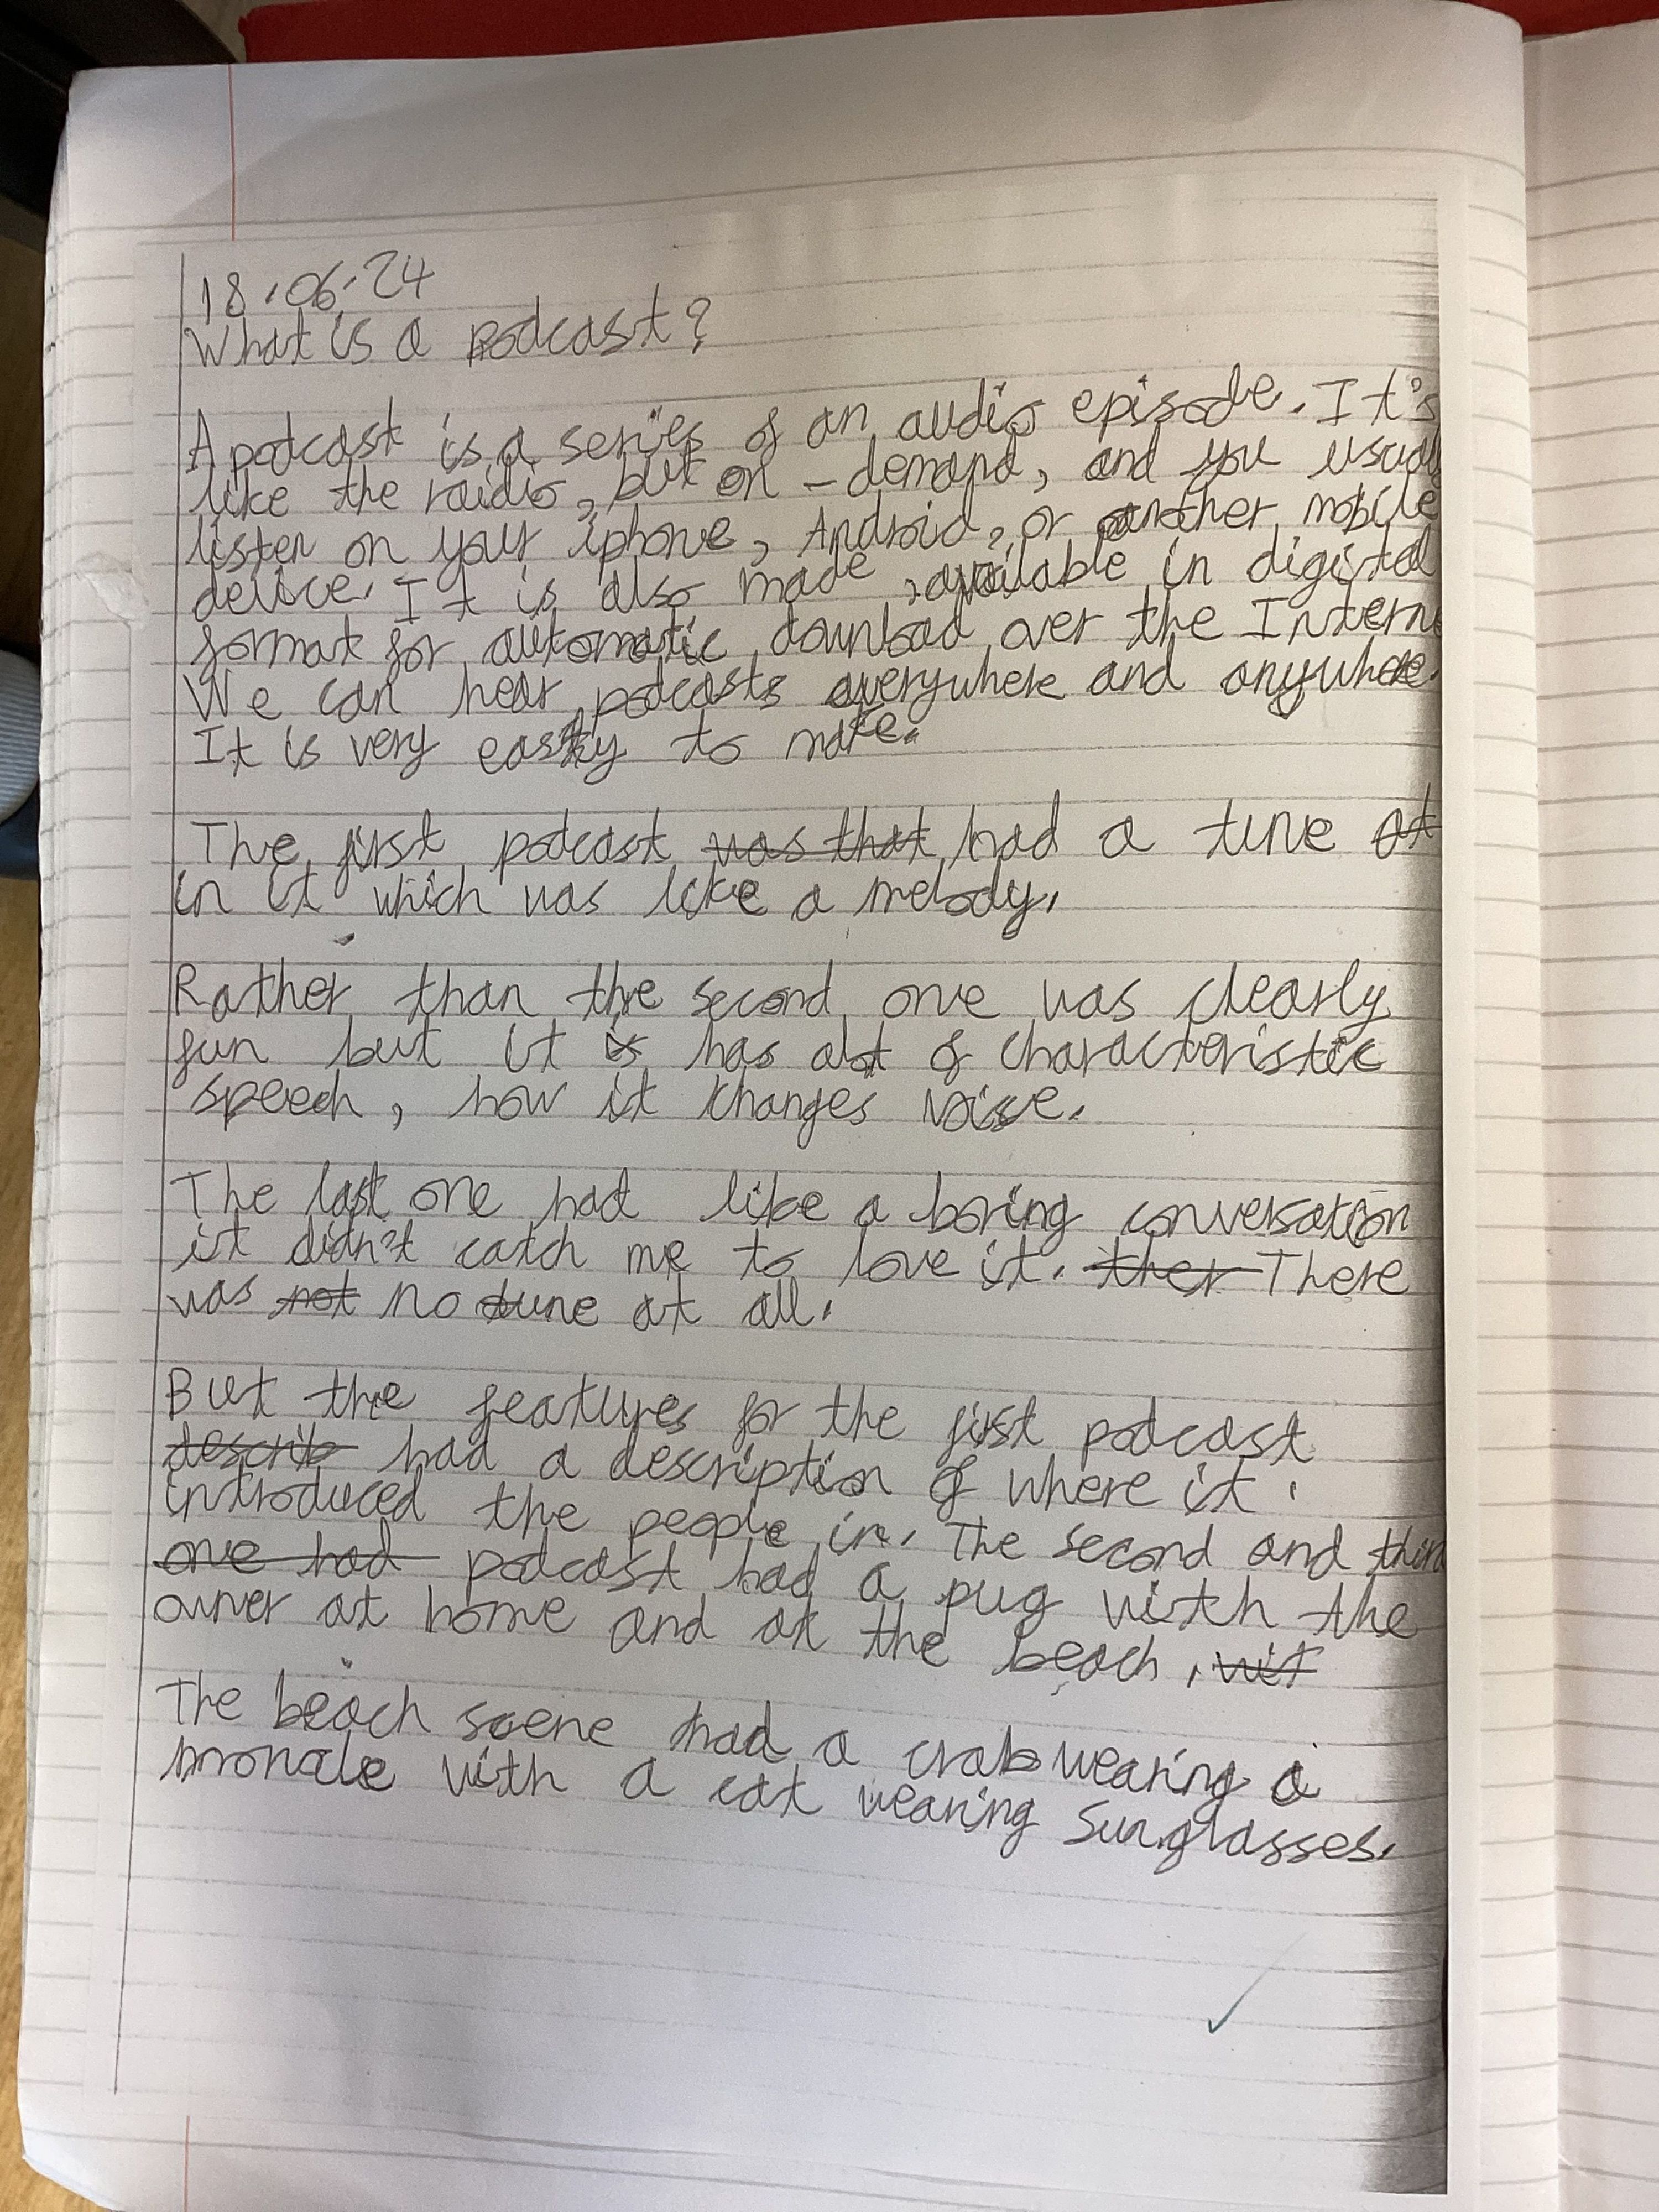 18.06.24
What is a podcast?
A podcast is a series of an audio episode. It's
like the raidio, but on-demand, and you usual
listen on your iphone, Android, or another mobile
device. It is also made available in digital
format for automatic download over the Intern
We can hear podcasts everywhere and anywhere.
It is very easy to make.
The first podcast was that had a tune at
in it which was like a melody.
Rather than the second one was clearly
fun but it is has alot of characteristic
speech, how it changes voice.
The last one had like a boring conversation
it didn't catch me to love it. ther There
was not no tune at all.
But the features for the first podcast
describ had a description of where it.
introduced the people in. The second and third
one had podcast had a pug with the
owner at home and at the beach. wit
The beach scene had a crab wearing a
with a cat wearing sunglasses.